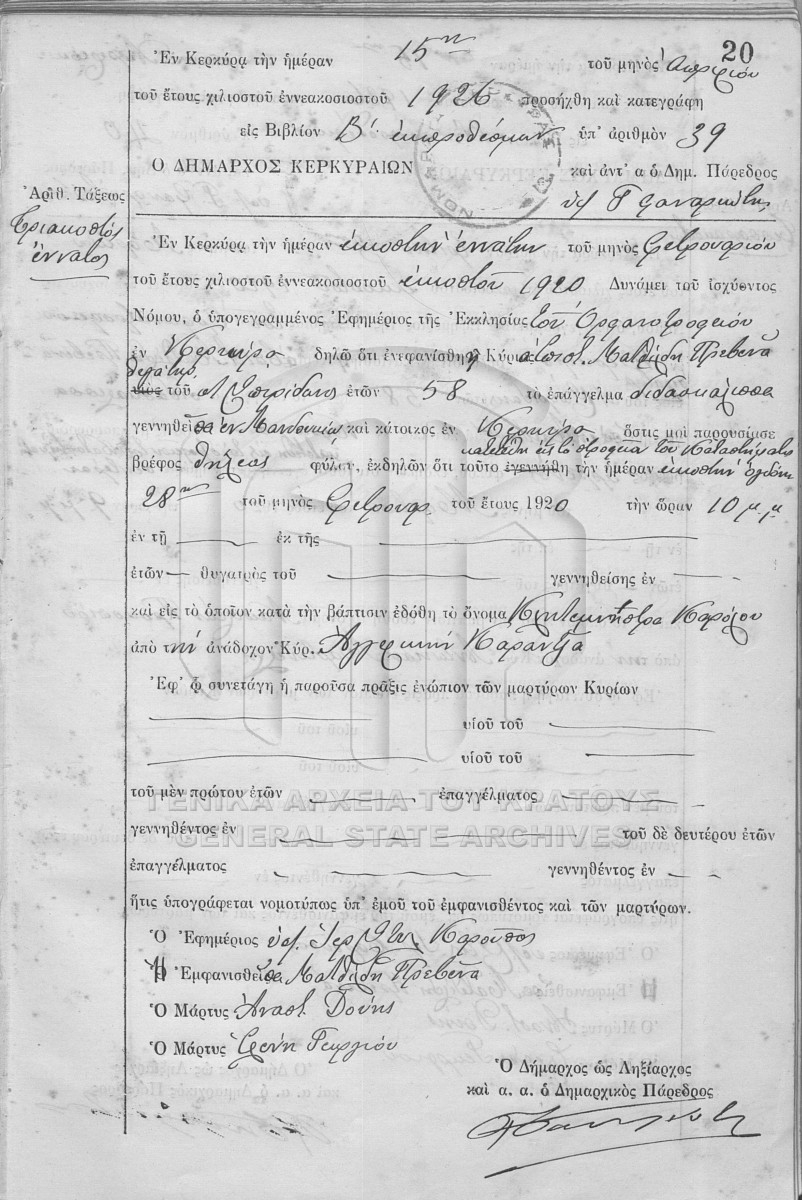 20
Ἐν Κερκύρᾳ τὴν ἡμέραν 15ην τοῦ μηνὸς Ἀπριλίου
τοῦ ἔτους χιλιοστοῦ ἐννεακοσιοστοῦ 1926 προσήχθη καὶ κατεγράφη
εἰς Βιβλίον Β΄ ἐκπροθέσμων ὑπ' ἀριθμὸν 39
Ο ΔΗΜΑΡΧΟΣ ΚΕΡΚΥΡΑΙΩΝ καὶ ἀντ' α ὁ Δημ. Πάρεδρος
Ἀριθ. Τάξεως
Τριακοστὸς
ἔννατος
Ἐν Κερκύρᾳ τὴν ἡμέραν εἰκοστὴν ἐννάτην τοῦ μηνὸς Φεβρουαρίου
τοῦ ἔτους χιλιοστοῦ ἐννεακοσιοστοῦ εἰκοστοῦ 1920 Δυνάμει τοῦ ἰσχύοντος
Νόμου, ὁ ὑπογεγραμμένος Ἐφημέριος τῆς Ἐκκλησίας τοῦ Ὀρφανοτροφείου
ἐν Κερκύρᾳ δηλῶ ὅτι ἐνεφανίσθη ἡ Κυρία Ματθίλδη Πρεβενᾶ
θυγάτηρ
υἱὸς τοῦ Σπυρίδωνος ἐτῶν 58 τὸ ἐπάγγελμα διδασκάλισσα
γεννηθεῖσα ἐν Μανδουκίῳ καὶ κάτοικος ἐν Κερκύρᾳ ὅστις μοὶ παρουσίασε
κατετέθη εἰς τὸ βρεφοδόχον τοῦ Καταστήματος
βρέφος θήλεος φύλου, ἐκδηλῶν ὅτι τοῦτο ἐγεννήθη τὴν ἡμέραν εἰκοστὴν ὀγδόην
28ην τοῦ μηνὸς Φεβρουαρ. τοῦ ἔτους 1920 τὴν ὥραν 10 μ μ
ἐν τῇ ἐκ τῆς
ἐτῶν θυγατρὸς τοῦ γεννηθείσης ἐν
καὶ εἰς τὸ ὁποῖον κατὰ τὴν βάπτισιν ἐδόθη τὸ ὄνομα Κλυταιμνήστρα Καρόλου
ἀπὸ τὴν ἀνάδοχον Κύρ. Ἀγγελικὴν Καραντζᾶ
Ἐφ' ᾧ συνετάγη ἡ παροῦσα πρᾶξις ἐνώπιον τῶν μαρτύρων Κυρίων
υἱοῦ τοῦ
υἱοῦ τοῦ
τοῦ μὲν πρώτου ἐτῶν ἐπαγγέλματος
ΓΕΝΙΚΑ ΑΡΧΕΙΑ ΤΟΥ ΚΡΑΤΟΥΣ
GENERAL STATE ARCHIVES
γεννηθέντος ἐν τοῦ δὲ δευτέρου ἐτῶν
ἐπαγγέλματος γεννηθέντος ἐν
ἥτις ὑπογράφεται νομοτύπως ὑπ' ἐμοῦ τοῦ ἐμφανισθέντος καὶ τῶν μαρτύρων.
Ὁ Ἐφημέριος Ἱερ
Ἡ Ἐμφανισθεῖσα Ματθίλδη Πρεβενᾶ
Ὁ Μάρτυς Ἀναστ. Δούης
Ὁ Μάρτυς Γεωργίου
Ὁ Δήμαρχος ὡς Ληξίαρχος
καὶ α. α. ὁ Δημαρχικὸς Πάρεδρος